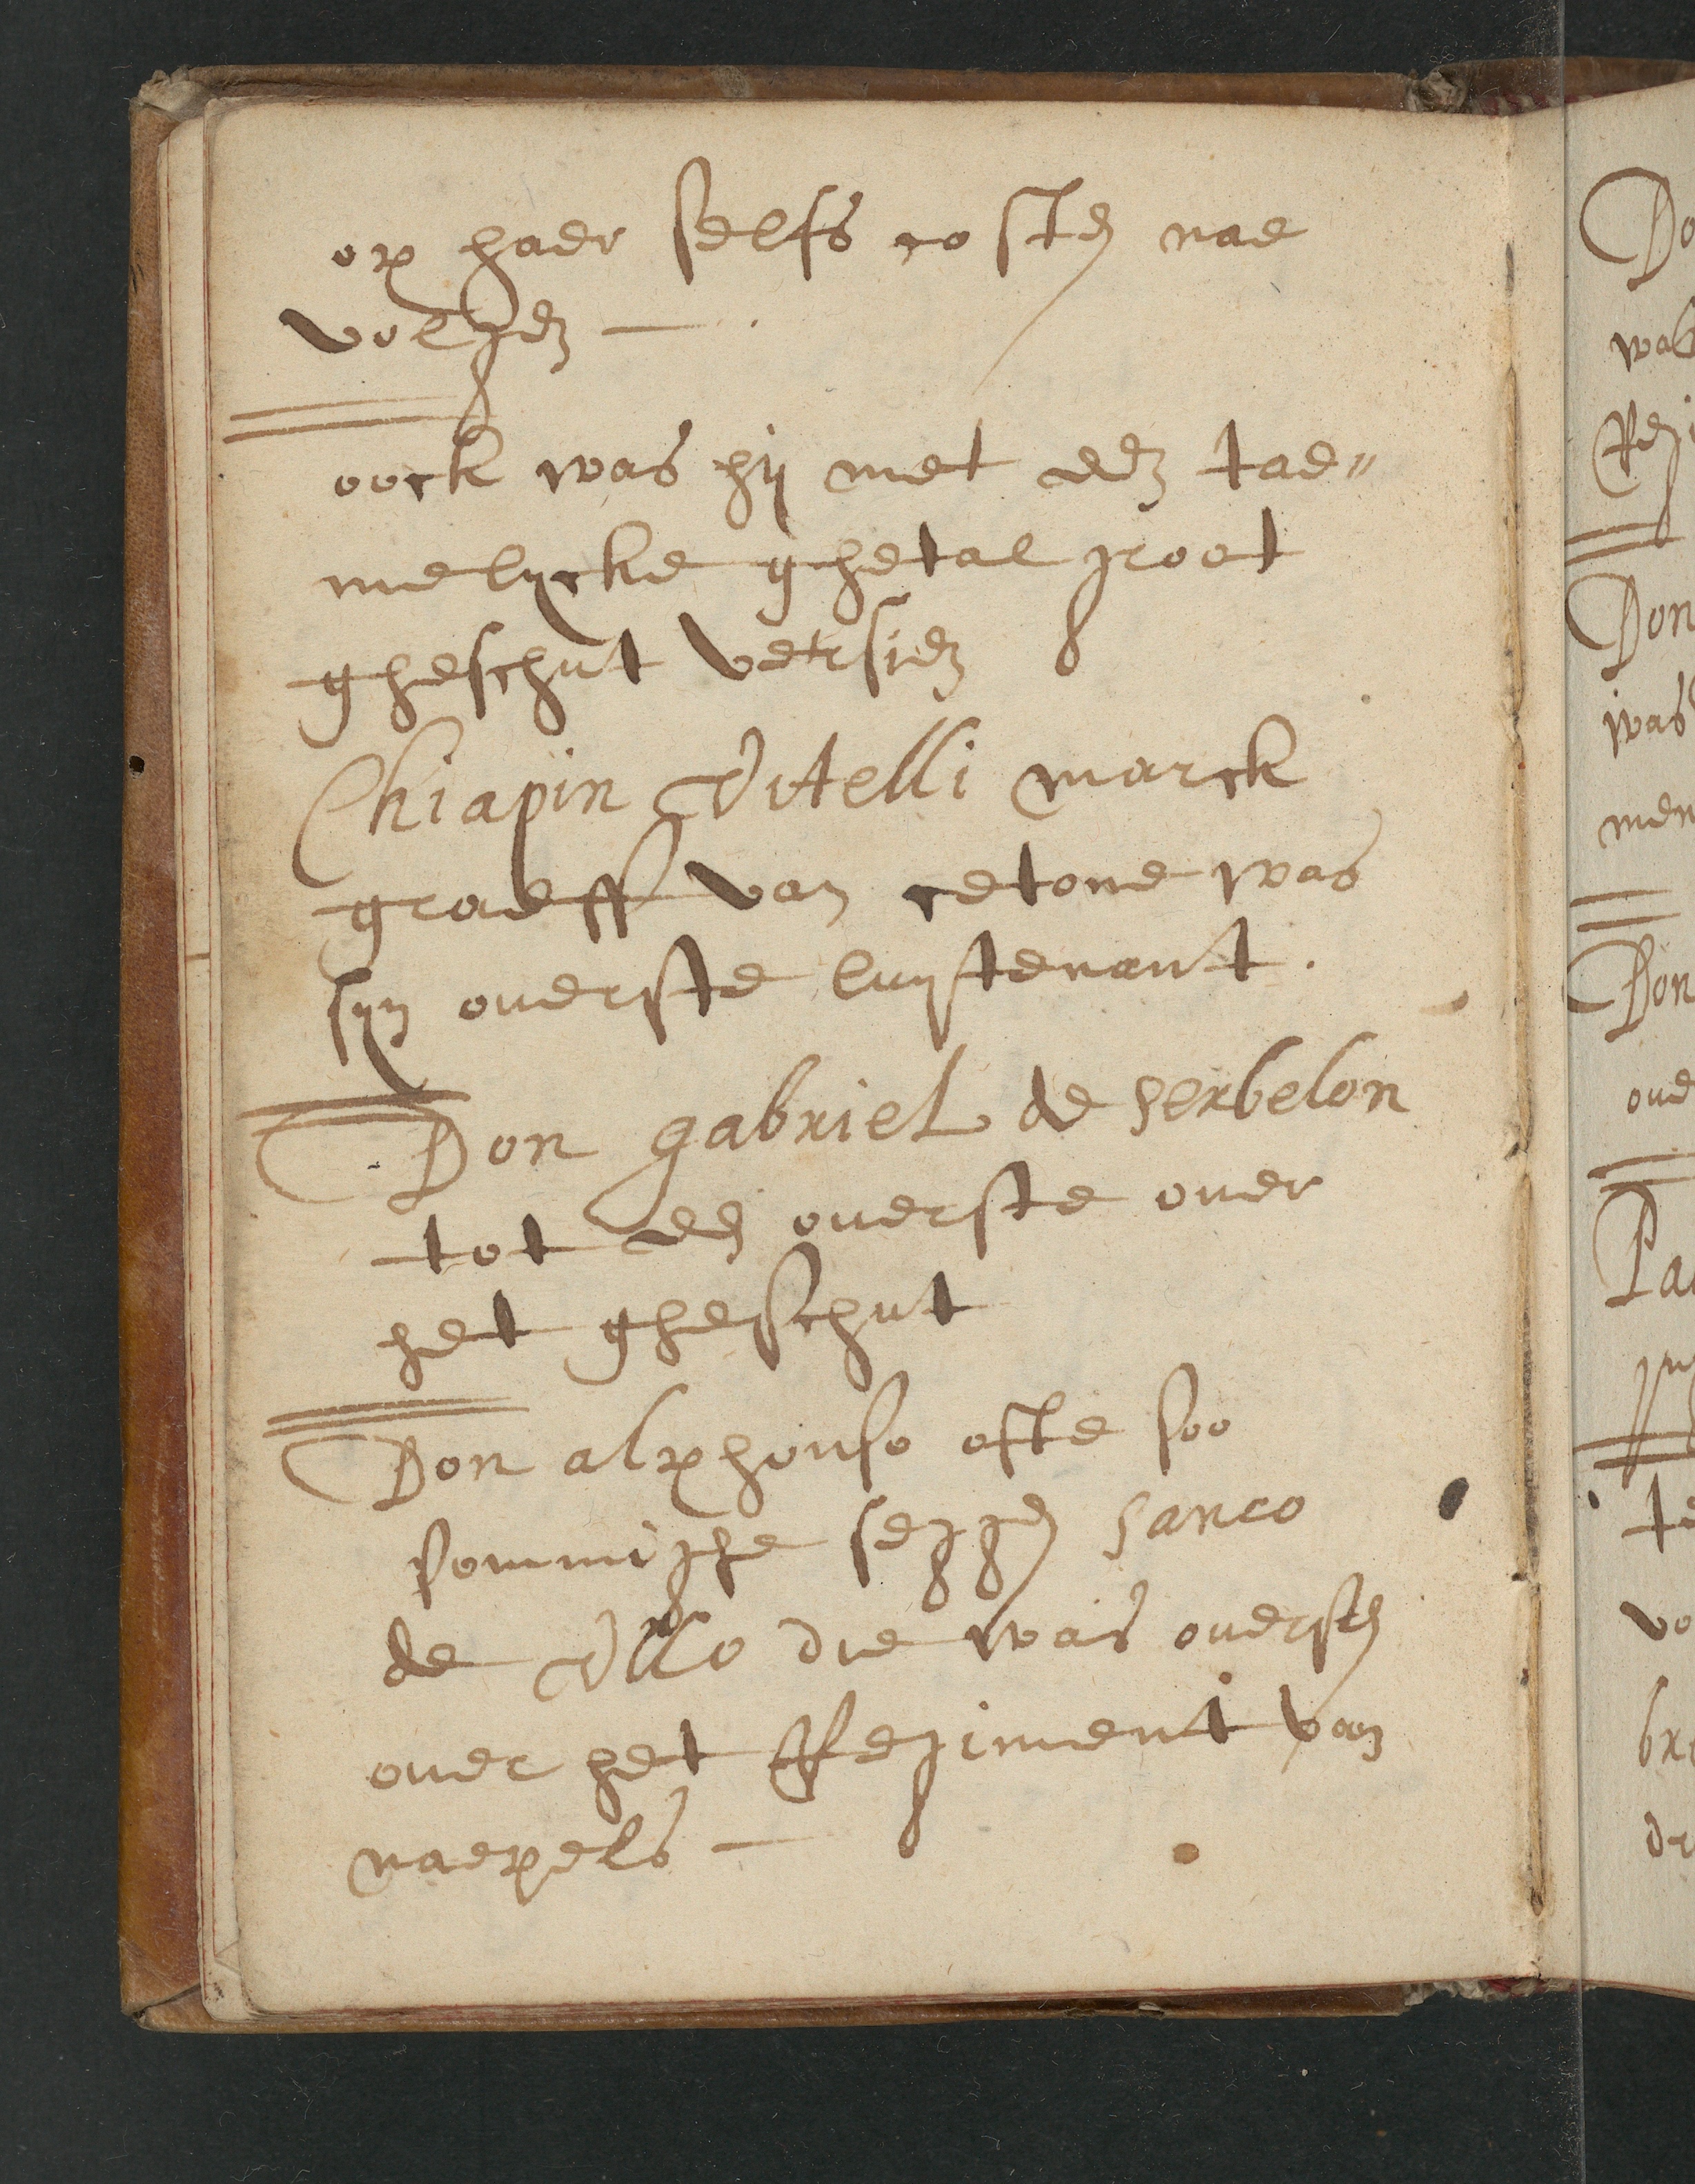 op haer selfs costen nae
volgen —.
oock was hij met een tae„
melycke ghetal groot
gheschut versien
Chiapin Vitelli marck
graeff van cetone was
syn overste luijtenant.
Don gabriel de serbelon
tot een overste over
het gheschut
Don alphonso ofte soo
sommighe seggen sanco
de Vllo die was oversten
over het Regiment van
naepels —
Do
was
Regi
Don
was
men
Don
ove
Pa
te
vo